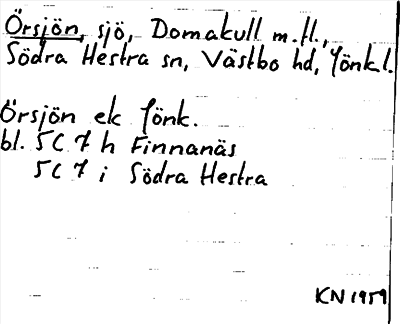 Örsjön, sjö, Domakull m.fl.,
Södra Hestra sn, Västbo hd, Jönk.l.
Örsjön ek Jönk.
bl. 5C 7 h Finnanäs
5C 7 i Södra Hestra
KN 1959